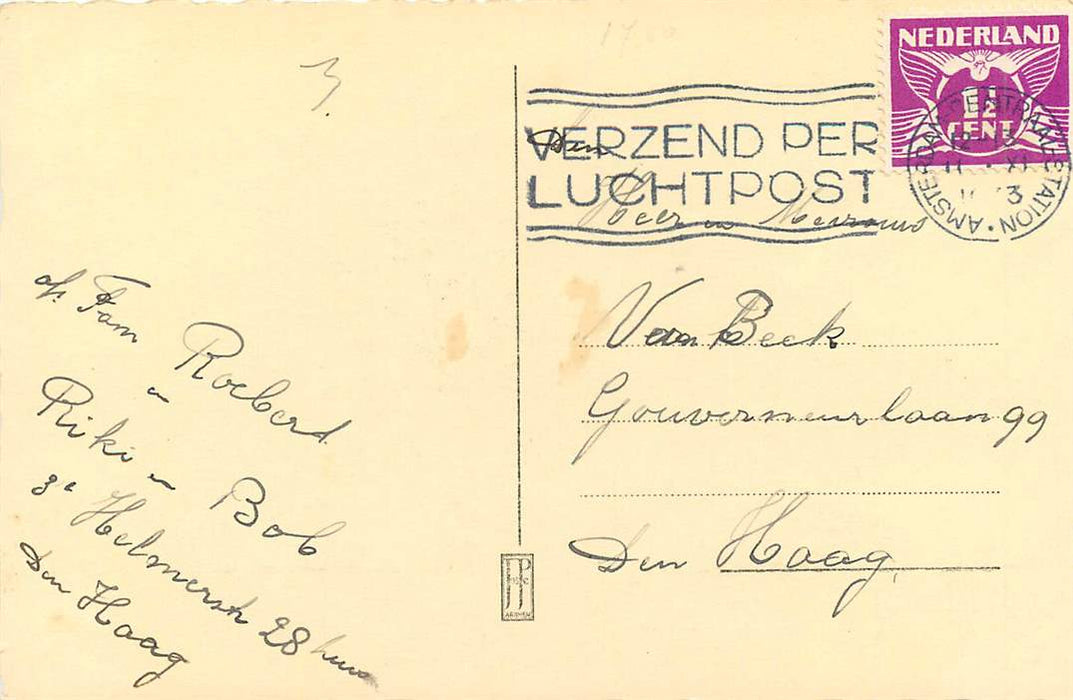 NEDERLAND
1½
CENT
AMSTERDAM CENTRAAL STATION
VERZEND PER
LUCHTPOST
Den
Heer en Mevrouw
Van Beek
Gouverneurlaan 99
Den Haag.
Fam
Roeberd
en
Riki en Bob
3e Helmerstr 28 huis
Den Haag